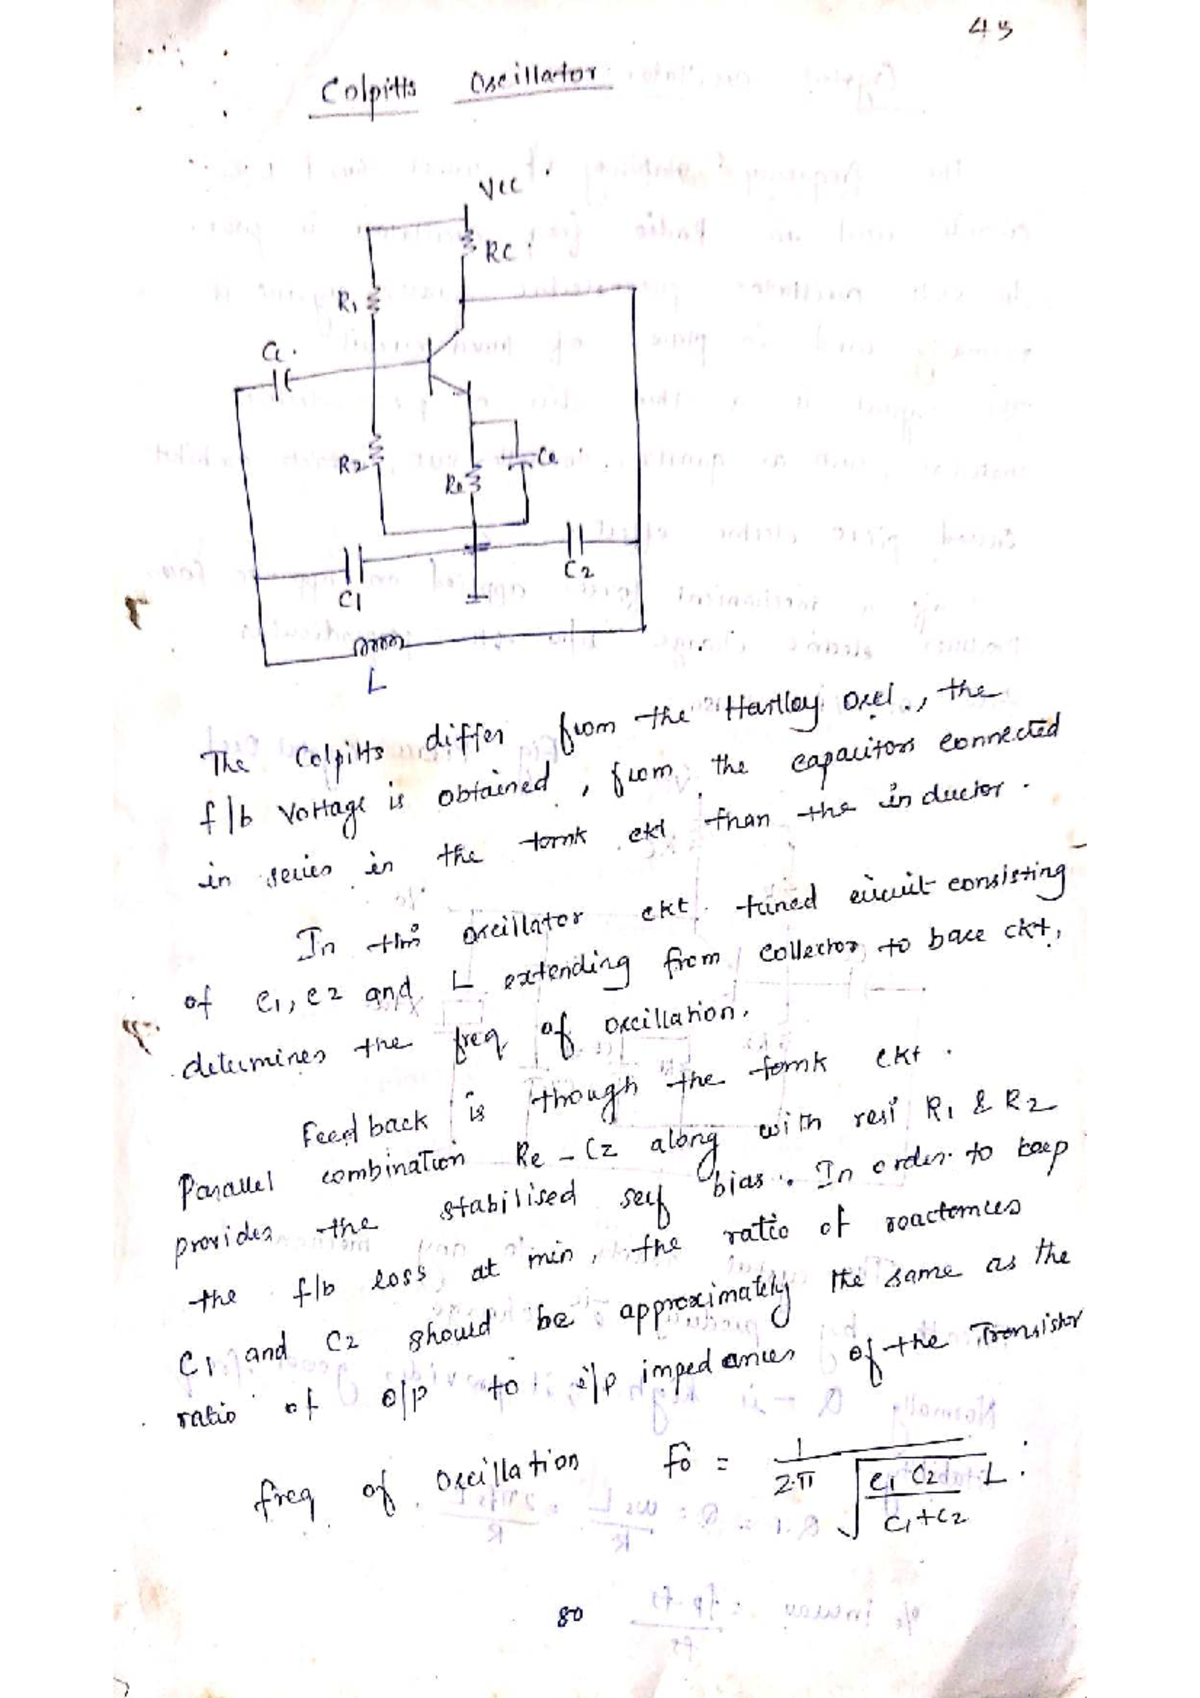 45
Colpitts Oscillator
Vcc
RC
R1
C1
R2
Re
Ce
C1
C2
L
The Colpitts differ from the Hartley Oscl., the
f/b Voltage is obtained, from the capacitors connected
in series in the tank ckt than the inductor.
In this oscillator ckt. tuned circuit consisting
of C1, C2 and L extending from collector to base ckt,
determines the freq of oscillation.
Feed back is though the tank ckt.
Parallel combination Re - C2 along with resi R1 & R2
provides the stabilised self bias. In order to keep
the f/b loss at min, the ratio of reactances
C1 and C2 should be approximately the same as the
ratio of o/p to i/p impedances of the Transistor
freq of Oscillation Fo = 1 / 2π √(C1 C2 / C1+C2 L)
80